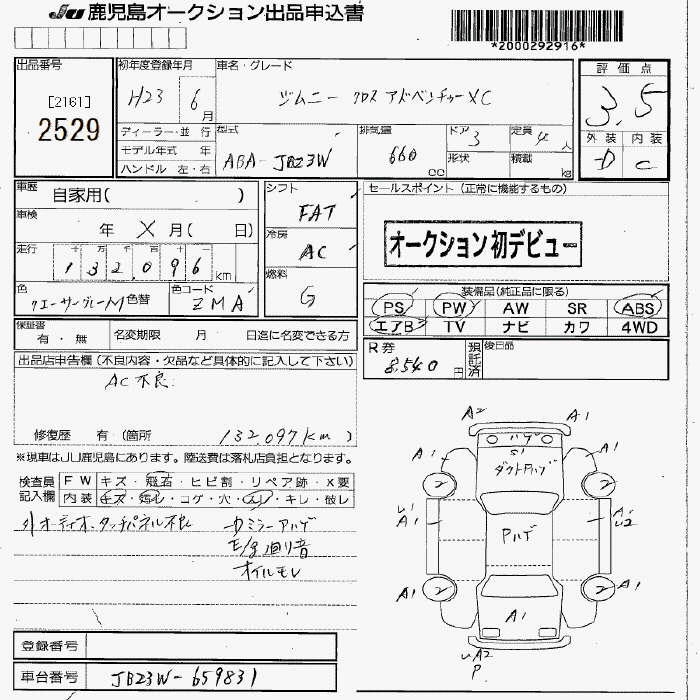 JU 鹿児島オークション出品申込書
*2000292916*
出品番号
[2161]
2529
初年度登録年月
H23 6月
車名・グレード
ジムニー クロスアドベンチャーXC
評価点
3.5
外装 内装
D C
ディーラー・並行
モデル年式 年
ハンドル 左・右
型式
ABA-JB23W
排気量
660cc
ドア 3
形状
定員 4人
積載 kg
車歴
自家用( )
車検
年 X 月( 日)
走行
十 万 千 百 十 一
132,096km
色
クエーサーグレーM 色替
色コード
ZMA
シフト
FAT
冷房
AC
燃料
G
セールスポイント(正常に機能するもの)
オークション初デビュー
装備品(純正品に限る)
PS PW AW SR ABS
エアB TV ナビ カワ 4WD
R券
8,540円
預託済
後日品
保証書
有・無
名変期限 月 日迄に名変できる方
出品店申告欄(不良内容・欠品など具体的に記入して下さい)
AC不良
修復歴 有(箇所 132,097km)
※現車はJU鹿児島にあります。陸送費は落札店負担となります。
検査員記入欄
FW キズ・飛石・ヒビ割・リペア跡・X要
内装 キズ・汚れ・コゲ・穴・スレ・キレ・破レ
オーディオ、タッチパネル不良
ミラーハゲ
E/g廻り音
オイルモレ
A2 A1
ハゲ
S1
ダクトPハゲ
A1 A1
2 2
A1 Pハゲ A1
U2
A1 2 2 A1
A1
A2
P
登録番号
車台番号
JB23W-659831